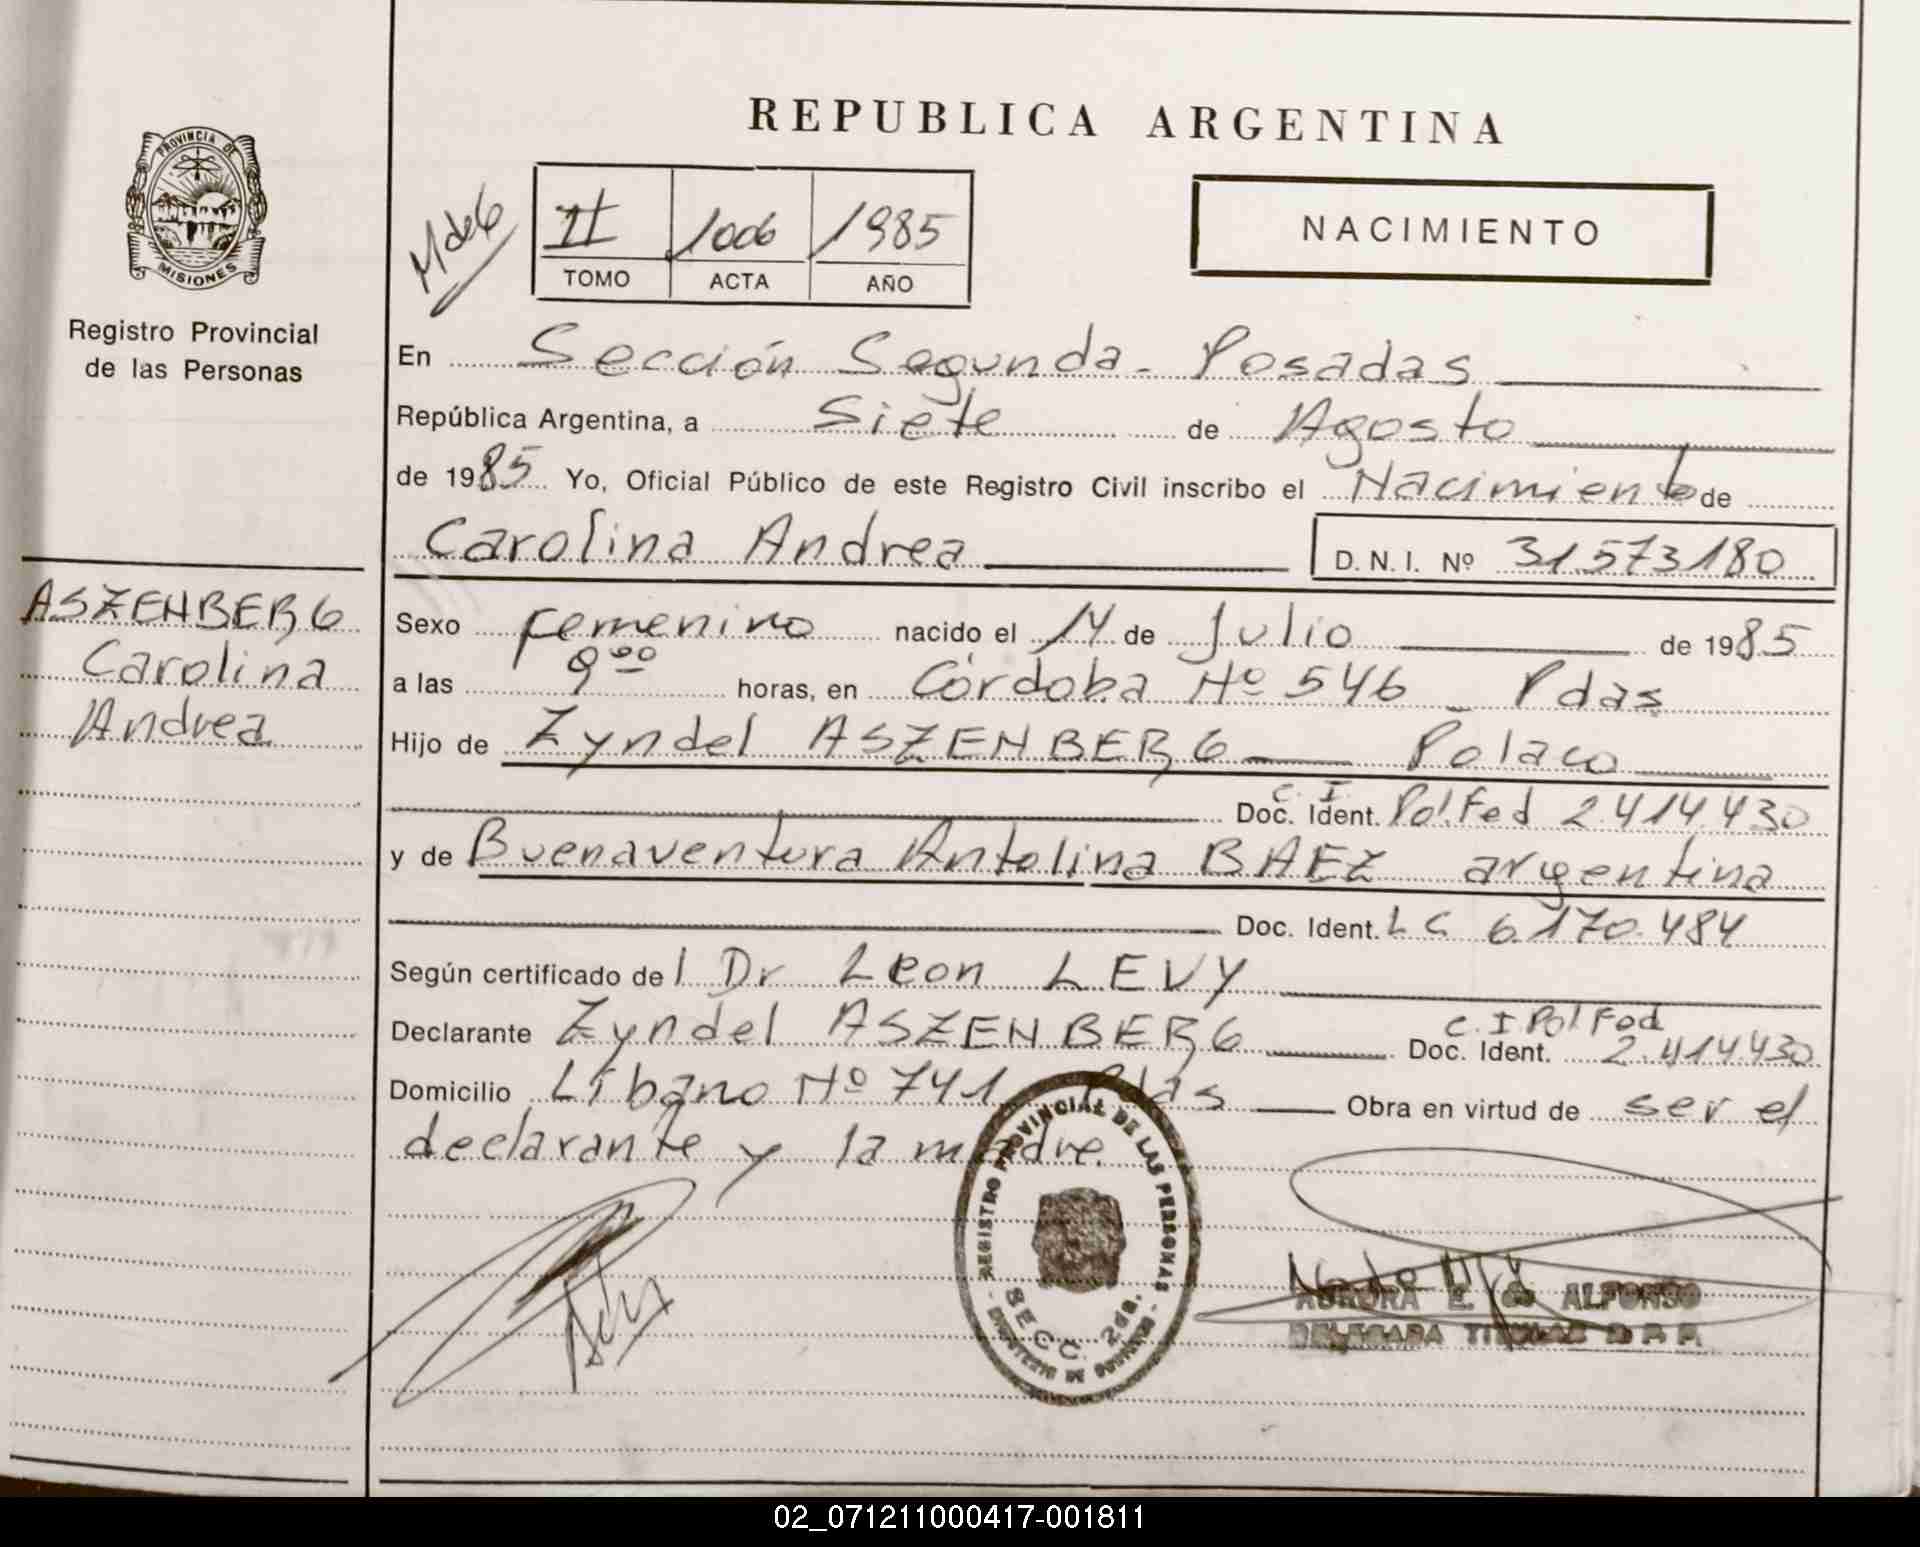 REPUBLICA ARGENTINA
PROVINCIA DE
MISIONES
Registro Provincial
de las Personas
II 1006 1985
TOMO ACTA AÑO
NACIMIENTO
En Sección Segunda - Posadas
República Argentina, a Siete de Agosto
de 1985 Yo, Oficial Público de este Registro Civil inscribo el Nacimiento de
Carolina Andrea D.N.I. Nº 31.573.180
ASZENBERG
Carolina
Andrea
Sexo femenino nacido el 14 de Julio de 1985
a las 9 00 horas, en Córdoba Nº 546 Pdas
Hijo de Zyndel ASZENBERG Polaco
C. I.
Doc. Ident. Pol. Fed 2.414.430
y de Buenaventura Antolina BAEZ argentina
Doc. Ident. L C 6.170.484
Según certificado del Dr Leon LEVY
C. I Pol Fed
Declarante Zyndel ASZENBERG Doc. Ident. 2.414.430
Domicilio Líbano Nº 741 Pdas Obra en virtud de ser el
declarante y la madre.
REGISTRO PROVINCIAL DE LAS PERSONAS
SECC. 2da.
AURORA E. ALFONSO
02_071211000417-001811